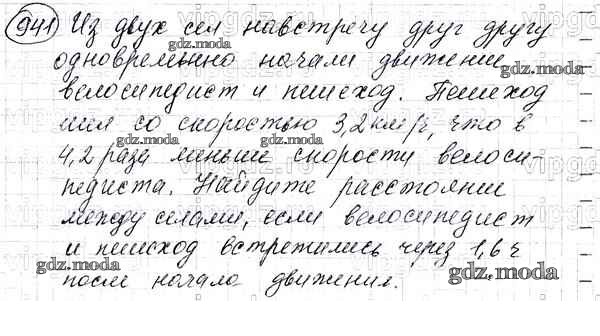 941 Из двух сел навстречу друг другу
одновременно начали движение
велосипедист и пешеход. Пешеход
шел со скоростью 3,2 км/ч, что в
4,2 раза меньше скорости велоси-
педиста. Найдите расстояние
между селами, если велосипедист
и пешеход встретились через 1,6 ч
после начала движения.
gdz.moda
gdz.moda
gdz.moda
gdz.moda
gdz.moda
gdz.moda
gdz.moda
gdz.moda
gdz.moda